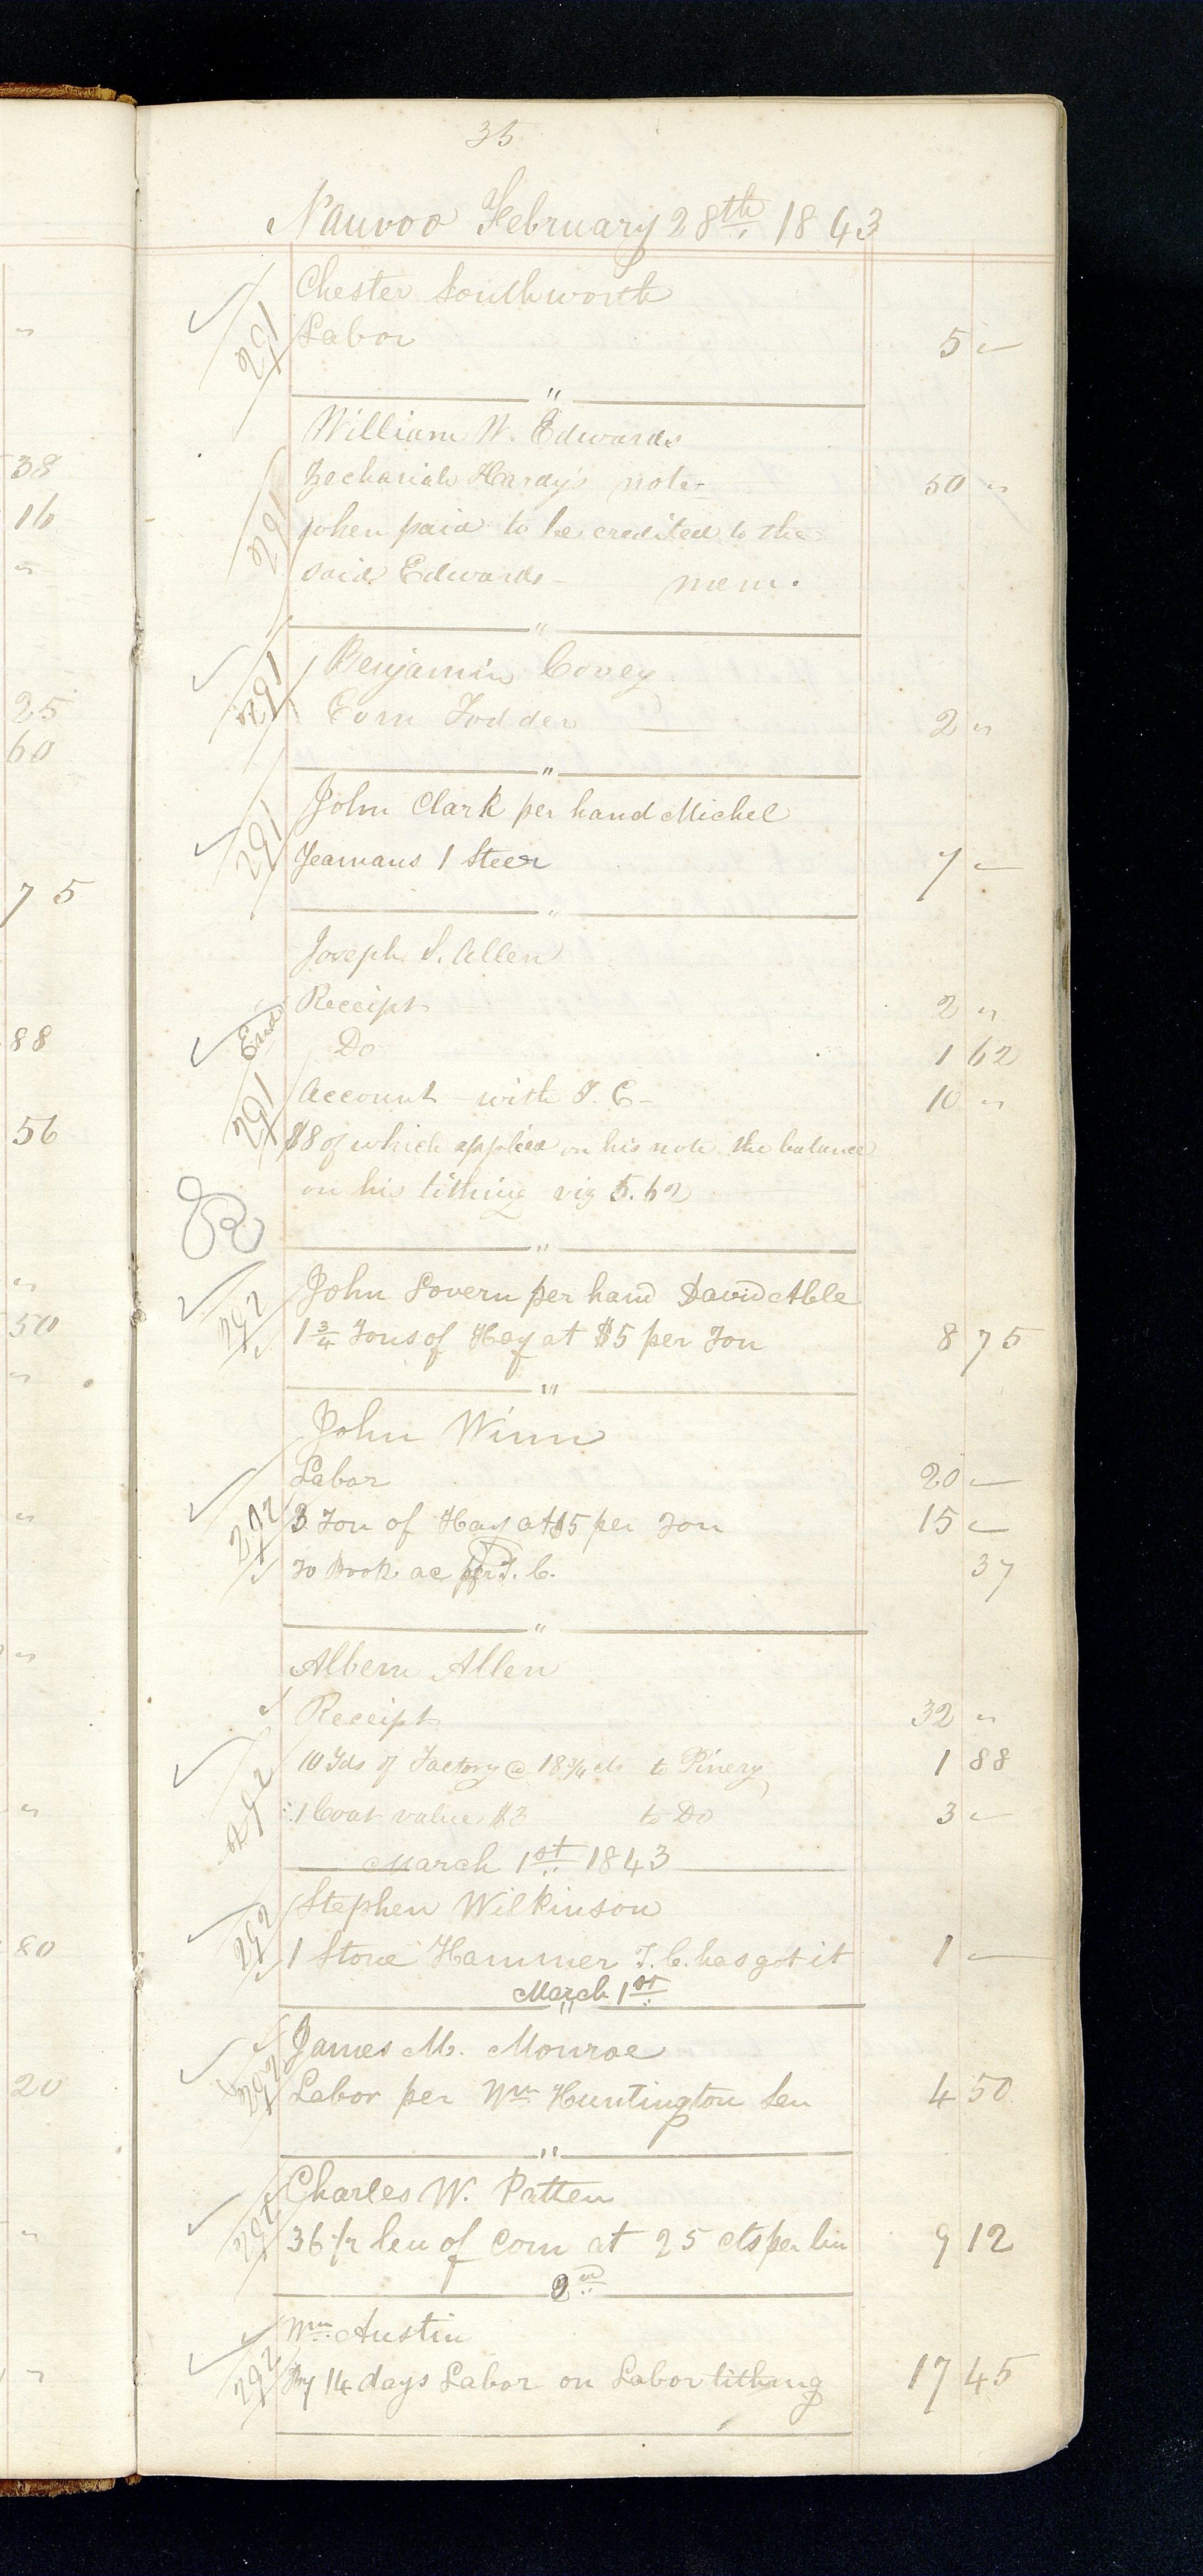 35
Nauvoo February 28th 1843
Chester Southworth
291 Labor 5 "
"
William W. Edwards
Zechariah Hardy's note- 50 "
291 when paid to be credited to the
said Edwards - mem.
"
Benjamin Covey
291 Corn Fodder 2 "
"
John Clark per hand Michel
291 Yeamans 1 Steer 7 "
"
Joseph S. Allen
Receipt 2 "
End Do 1 62
291 Account - with T. C- 10 "
$8 of which applied on his note the balance
on his tithing viz 5.62
"
John Lovern per hand David Able
292 1 3/4 Tons of Hay at $5 per Ton 8 75
"
John Winn
Labor 20 "
292 3 Ton of Hay at $5 per Ton 15 "
To Book ac per T. C. 37
"
Albern Allen
Receipt 32 "
292 10 Yds of Factory @ 18 3/4 cts to Pinery 1 88
1 Coat value $3 to Do 3 "
March 1st 1843
292 Stephen Wilkinson
1 Stone Hammer T. C. has got it 1 "
March 1st
"
James M. Monroe
292 Labor per Wm Huntington Sen 4 50
"
Charles W. Patten
292 36 1/2 bu of Corn at 25 cts per bu 9 12
2nd
Wm Austin
292 By 14 days Labor on Labor tithing 17 45
38
16
"
25
60
75
88
56
"
50
"
"
"
"
80
20
"
"